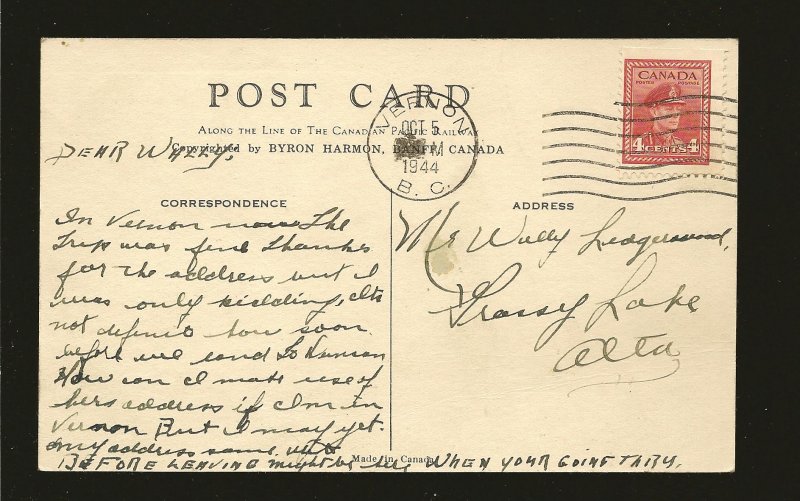 POST CARD
ALONG THE LINE OF THE CANADIAN PACIFIC RAILWAY
Copyrighted by BYRON HARMON, BANFF, CANADA
VERNON
OCT 5
M
1944
B.C.
CANADA
POSTES POSTAGE
4 CENTS 4
DEAR WALLY,
CORRESPONDENCE
In Vernon now The
Trip was fine thanks
for the address but I
was only kidding, its
not definite how soon
before we send to
How can I make use of
hers address if I'm in
Vernon But I may yet.
my address same
BEFORE LEAVING might be WHEN YOUR GOING THRU.
ADDRESS
Mr Wally Ledgerwood,
Grassy Lake
Alta
Made in Canada